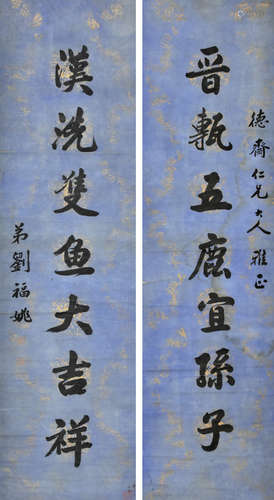 德齋仁兄大人雅正
晋甎五鹿宜孫子
漢洗雙魚大吉祥
弟劉福姚